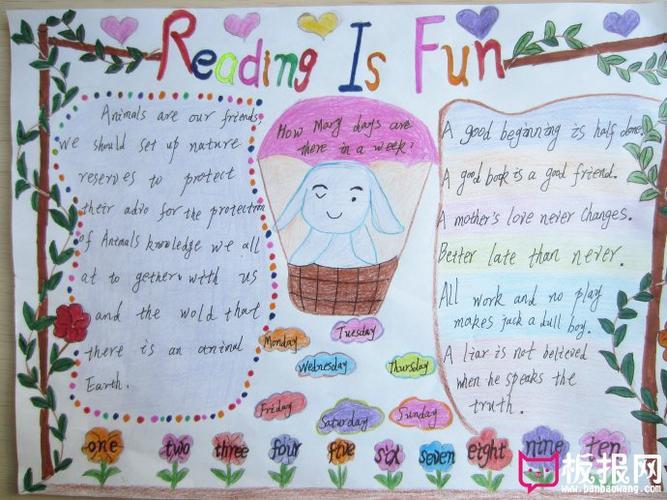 Reading Is Fun
Animals are our friends,
we should set up nature
reserves to protect
their advo for the protection
of Animals knowledge we all
at to gethery with us
and the wold that
there is an animal
Earth.
How Many days are
there in a week?
Monday
Tuesday
Wednesday
Thursday
Friday
Saturday
Sunday
A good beginning is half done.
A good book is a good friend.
A mother's love never Changes.
Better late than never.
All work and no play
makes jack a dull boy.
A liar is not believed
when he speaks the
truth.
one two three four five six seven eight nine ten
板报网
www.banbaowang.com